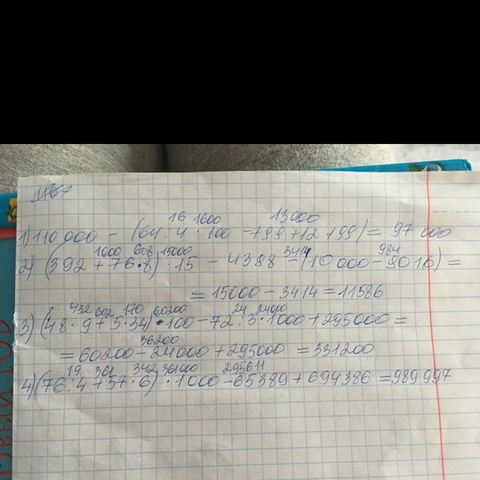 1) 110 000 - (64 : 4 · 100 - 799 + 12 199) = 97 000
16 1600 13000
1000 608 15000 3414 984
2) (392 + 76 · 8) · 15 - 4388 - (10 000 - 9016) =
= 15000 - 3414 = 11586
432 602 170 60200 24 24000
3) (48 · 9 + 5 · 34) · 100 - 72 : 3 · 1000 + 295000 =
36200
= 60200 - 24000 + 295000 = 331200
19 361 342 361000 295611
4) (76 : 4 + 57 · 6) · 1000 - 65389 + 694386 = 989 997